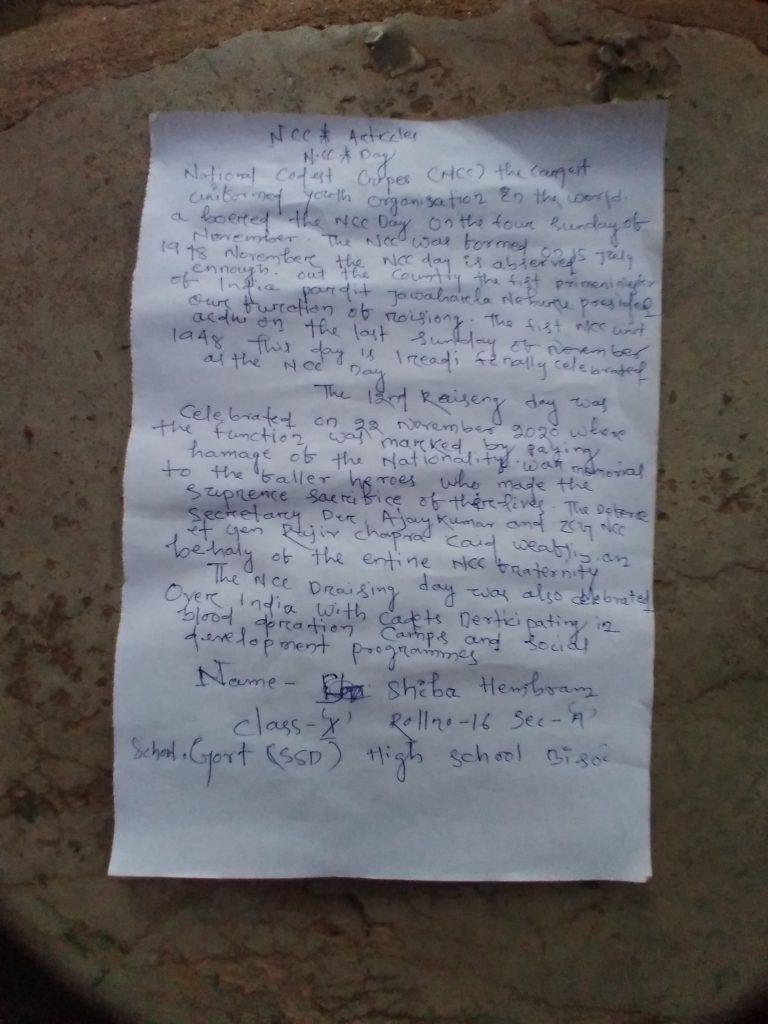 NCC * Articles
N.CC * Day
National Cadest Corpes (NCC) the largest
uniformed youth organisation in the world.
a boered the NCC Day on the four Sunday of
November. The NCC was formed on 15 July
1948 November the NCC day is observed
ennough. out the country the fist primeminister
of India pandit Jawaharla Nehuru presided
our furction of roisiong. The fist NCC unit
on the last Sunday of November
1948 This day is finally celebrated
as the NCC Day
The 12nd Raiseng day was
celebrated on 22 November 2020 where
the function was marked by paying
hamage of the Nationality war memorial
to the faller heroes who made the
suprence sacrifice of their lives. The Defence
secretary Dr. Ajay Kumar and NCC
Gen Rajir chopra
behaly of the entine NCC fraternity
The NCC Draising day was also celebrated
Over India with cadets Perticipating in
blood donation Camps and social
development programmes
Name - Shiba Hembram
class-'X' Roll no-16 Sec-'A'
School. Govt (SSD) High school Bisoi